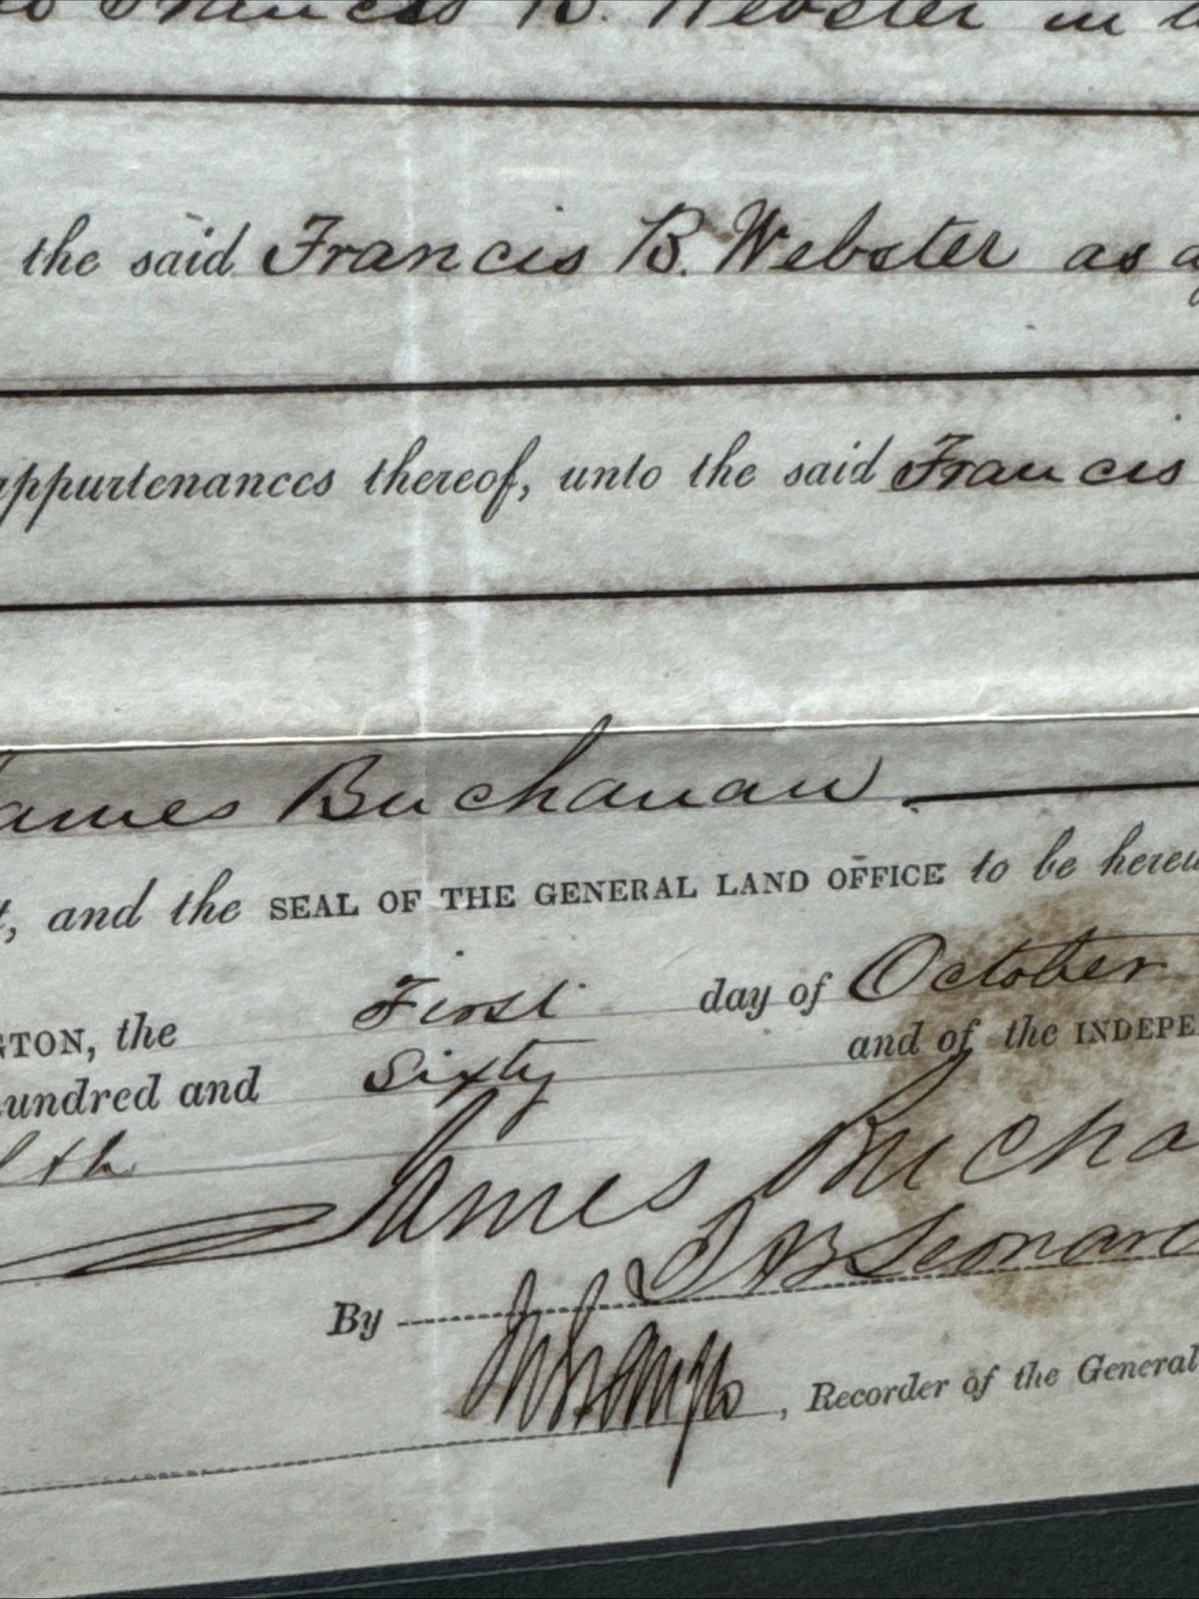 Francis B. Webster in
the said Francis B. Webster as
appurtenances thereof, unto the said Francis
James Buchanan.
and the SEAL OF THE GENERAL LAND OFFICE to be hereu
GTON, the First day of October
hundred and Sixty and of the INDEPE
lth
James Bucha
By J B Leonard
, Recorder of the General